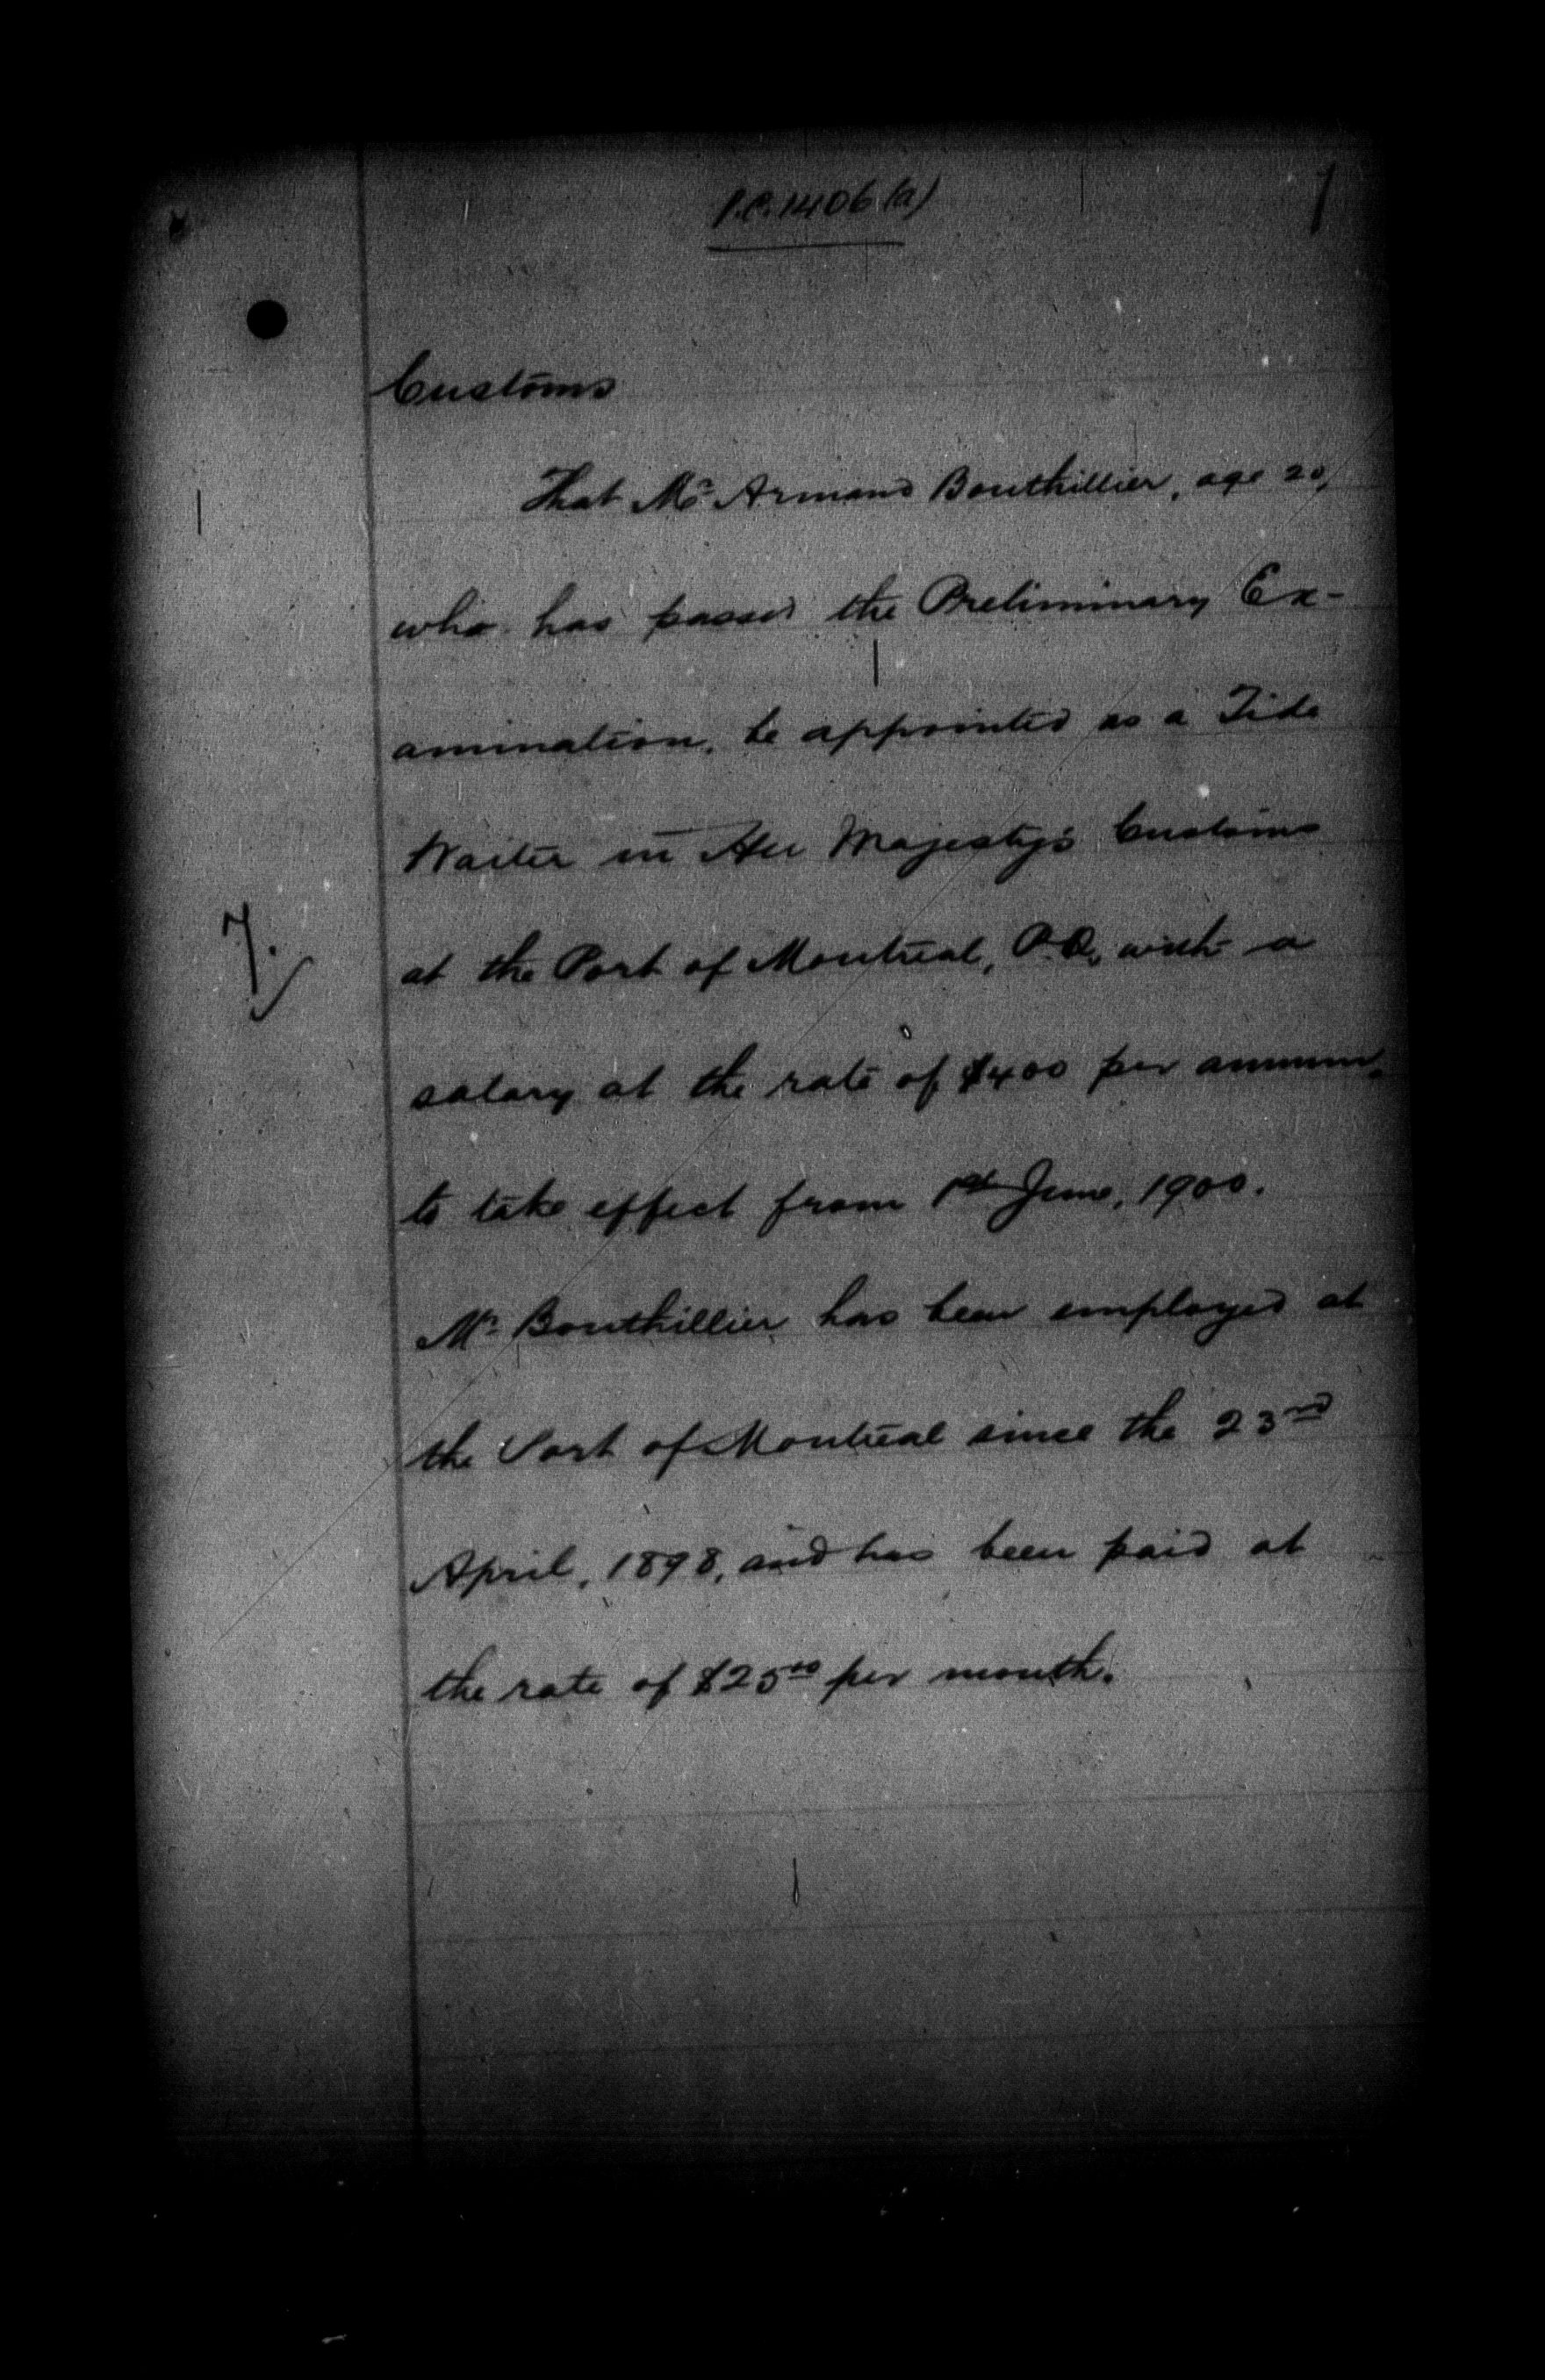 P.C. 1406 (a)
Customs
That Mr Armand Bouthillier, age 20,
who has passed the Preliminary Ex-
amination, be appointed as a Tide
Waiter in Her Majesty's Customs
at the Port of Montreal, P.Q., with a
salary at the rate of $400 per annum,
7.
to take effect from 1st June, 1900.
Mr Bouthillier has been employed at
the Port of Montreal since the 23rd
April, 1898, and has been paid at
the rate of $25.00 per month.